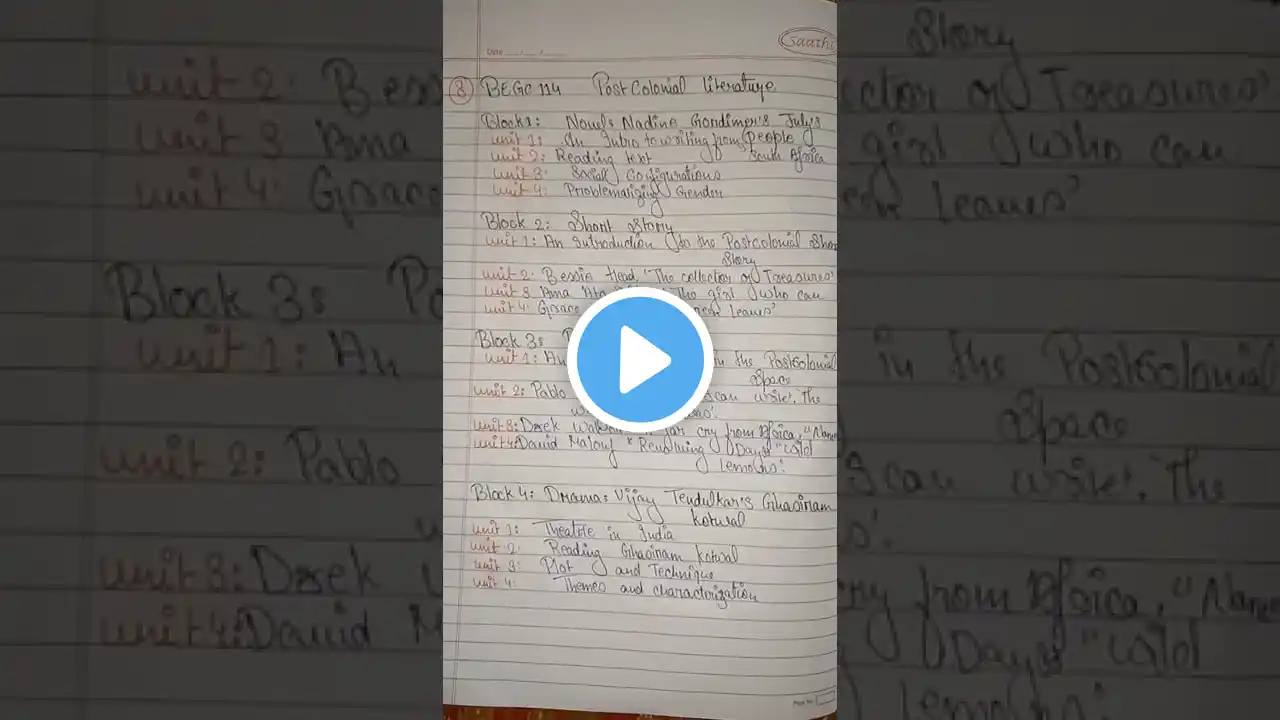 Saathi
Date
8 BEGC 114 Post Colonial literature
Block 1: Novel: Nadine Gordimer's July's
People
unit 1: An Intro to writing from South Africa
unit 2: Reading text
unit 3: Social Configurations
unit 4: Problematizing Gender
Block 2: Short Story
unit 1: An Introduction to the Postcolonial Short
Story
unit 2: Bessie Head, "The collector of Treasures"
unit 3 Ama Ata The girl who can
unit 4: Grace Leaves'
Block 3:
unit 1: An in the Postcolonial
Space
unit 2: Pablo I can write, The
unit 3: Derek far cry from Africa, "Names
unit 4: David Malouf "Revolving Days" "Wild
Lemons".
Block 4: Drama: Vijay Tendulkar's Ghasiram
Kotwal
unit 1: Theatre in India
unit 2: Reading Ghasiram Kotwal
unit 3: Plot and Technique
unit 4: Themes and characterization
Page No.